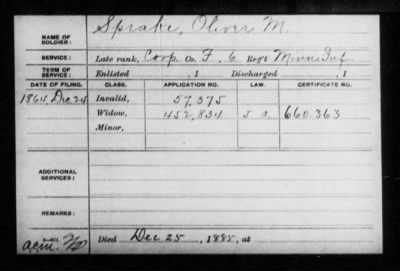 NAME OF SOLDIER: Sprake, Oliver M.
SERVICE: Late rank, Corp Co. F, 6 Reg't Minn Inf.
TERM OF SERVICE: Enlisted , 1 Discharged , 1
DATE OF FILING. CLASS. APPLICATION NO. LAW. CERTIFICATE NO.
1864 Dec 24 Invalid, 57,375
Widow, 452,834 660.363
Minor,
ADDITIONAL SERVICES:
REMARKS:
Died Dec 25, 1885, at